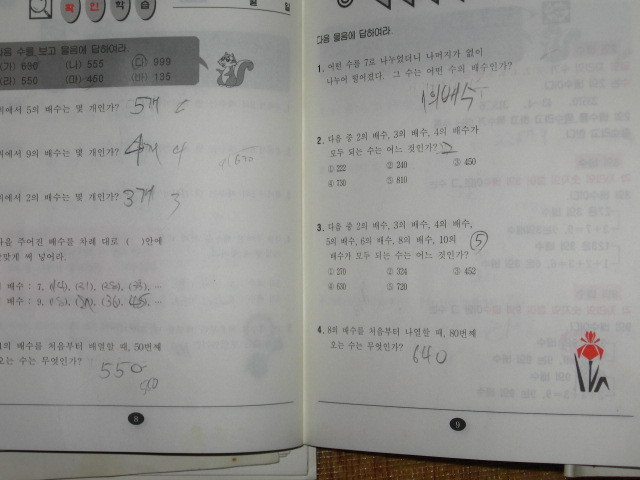 확인학습
월 일
다음 수를 보고 물음에 답하여라.
(나) 555
999
(라) 550 (마) 450 (바) 135
위에서 5의 배수는 몇 개인가? 5개
위에서 9의 배수는 몇 개인가? 4개 4
위에서 2의 배수는 몇 개인가? 3개 3
다음 주어진 배수를 차례 대로 ( )안에
알맞게 써 넣어라.
배수 : 7,
배수 : 9, (36)
처음부터 배열할 때, 50번째
오는 수는 무엇인가? 550
550
8
다음 물음에 답하여라.
1. 어떤 수를 7로 나누었더니 나머지가 없이
나누어 떨어졌다. 그 수는 어떤 수의 배수인가?
의배수
2. 다음 중 2의 배수, 3의 배수, 4의 배수가
모두 되는 수는 어느 것인가? 2
① 222 ② 240 ③ 450
④ 730 ⑤ 810
3. 다음 중 2의 배수, 3의 배수, 4의 배수,
5의 배수, 6의 배수, 8의 배수, 10의 ⑤
배수가 모두 되는 수는 어느 것인가?
① 270 ② 324 ③ 452
④ 630 ⑤ 720
4. 8의 배수를 처음부터 나열할 때, 80번째
오는 수는 무엇인가? 640
9